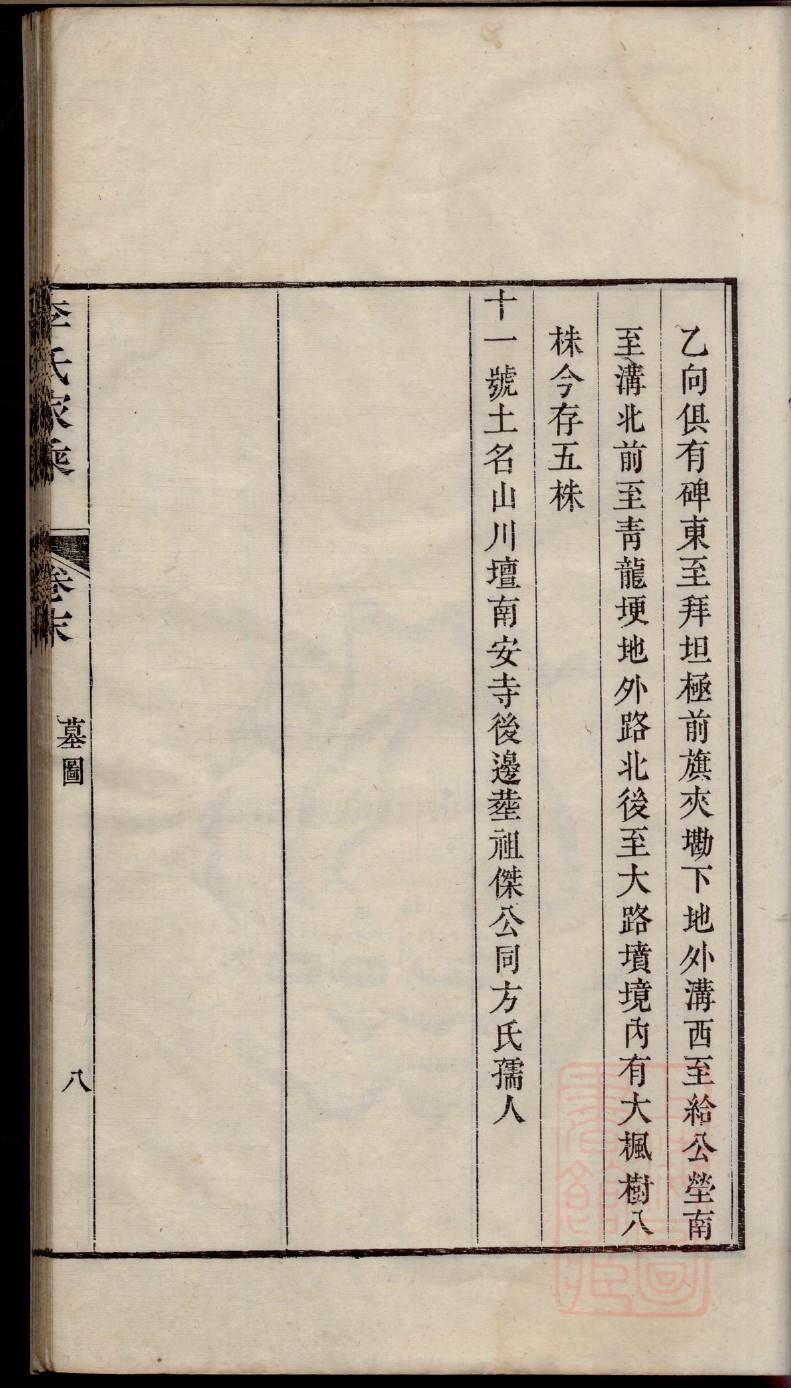 乙向俱有碑東至拜坦極前旗夾墈下地外溝西至給公塋南
至溝北前至靑龍埂地外路北後至大路墳境內有大楓樹八
株今存五株
十一號土名山川壇南安寺後邊塟祖傑公同方氏孺人
李氏家乘
卷末
墓圖
八